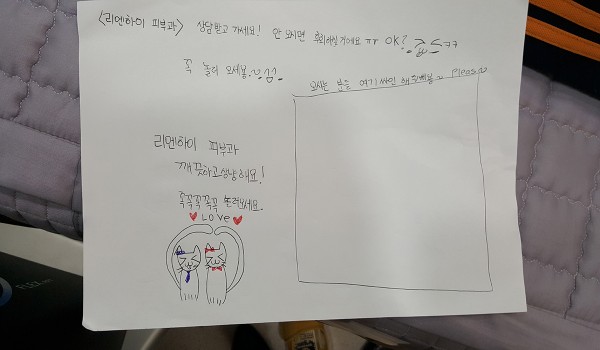 <리엔하이 피부과> 상담받고 가세요! 안 오시면 후회하실거에요 ㅠㅠ OK?
꼭 놀러 오세용
오시는 분들 여기 싸인
리엔하이 피부과
깨끗하고 상냥해요!
꼭꼭꼭꼭꼭 놀러오세요.
♥ LOVE ♥
FLEX